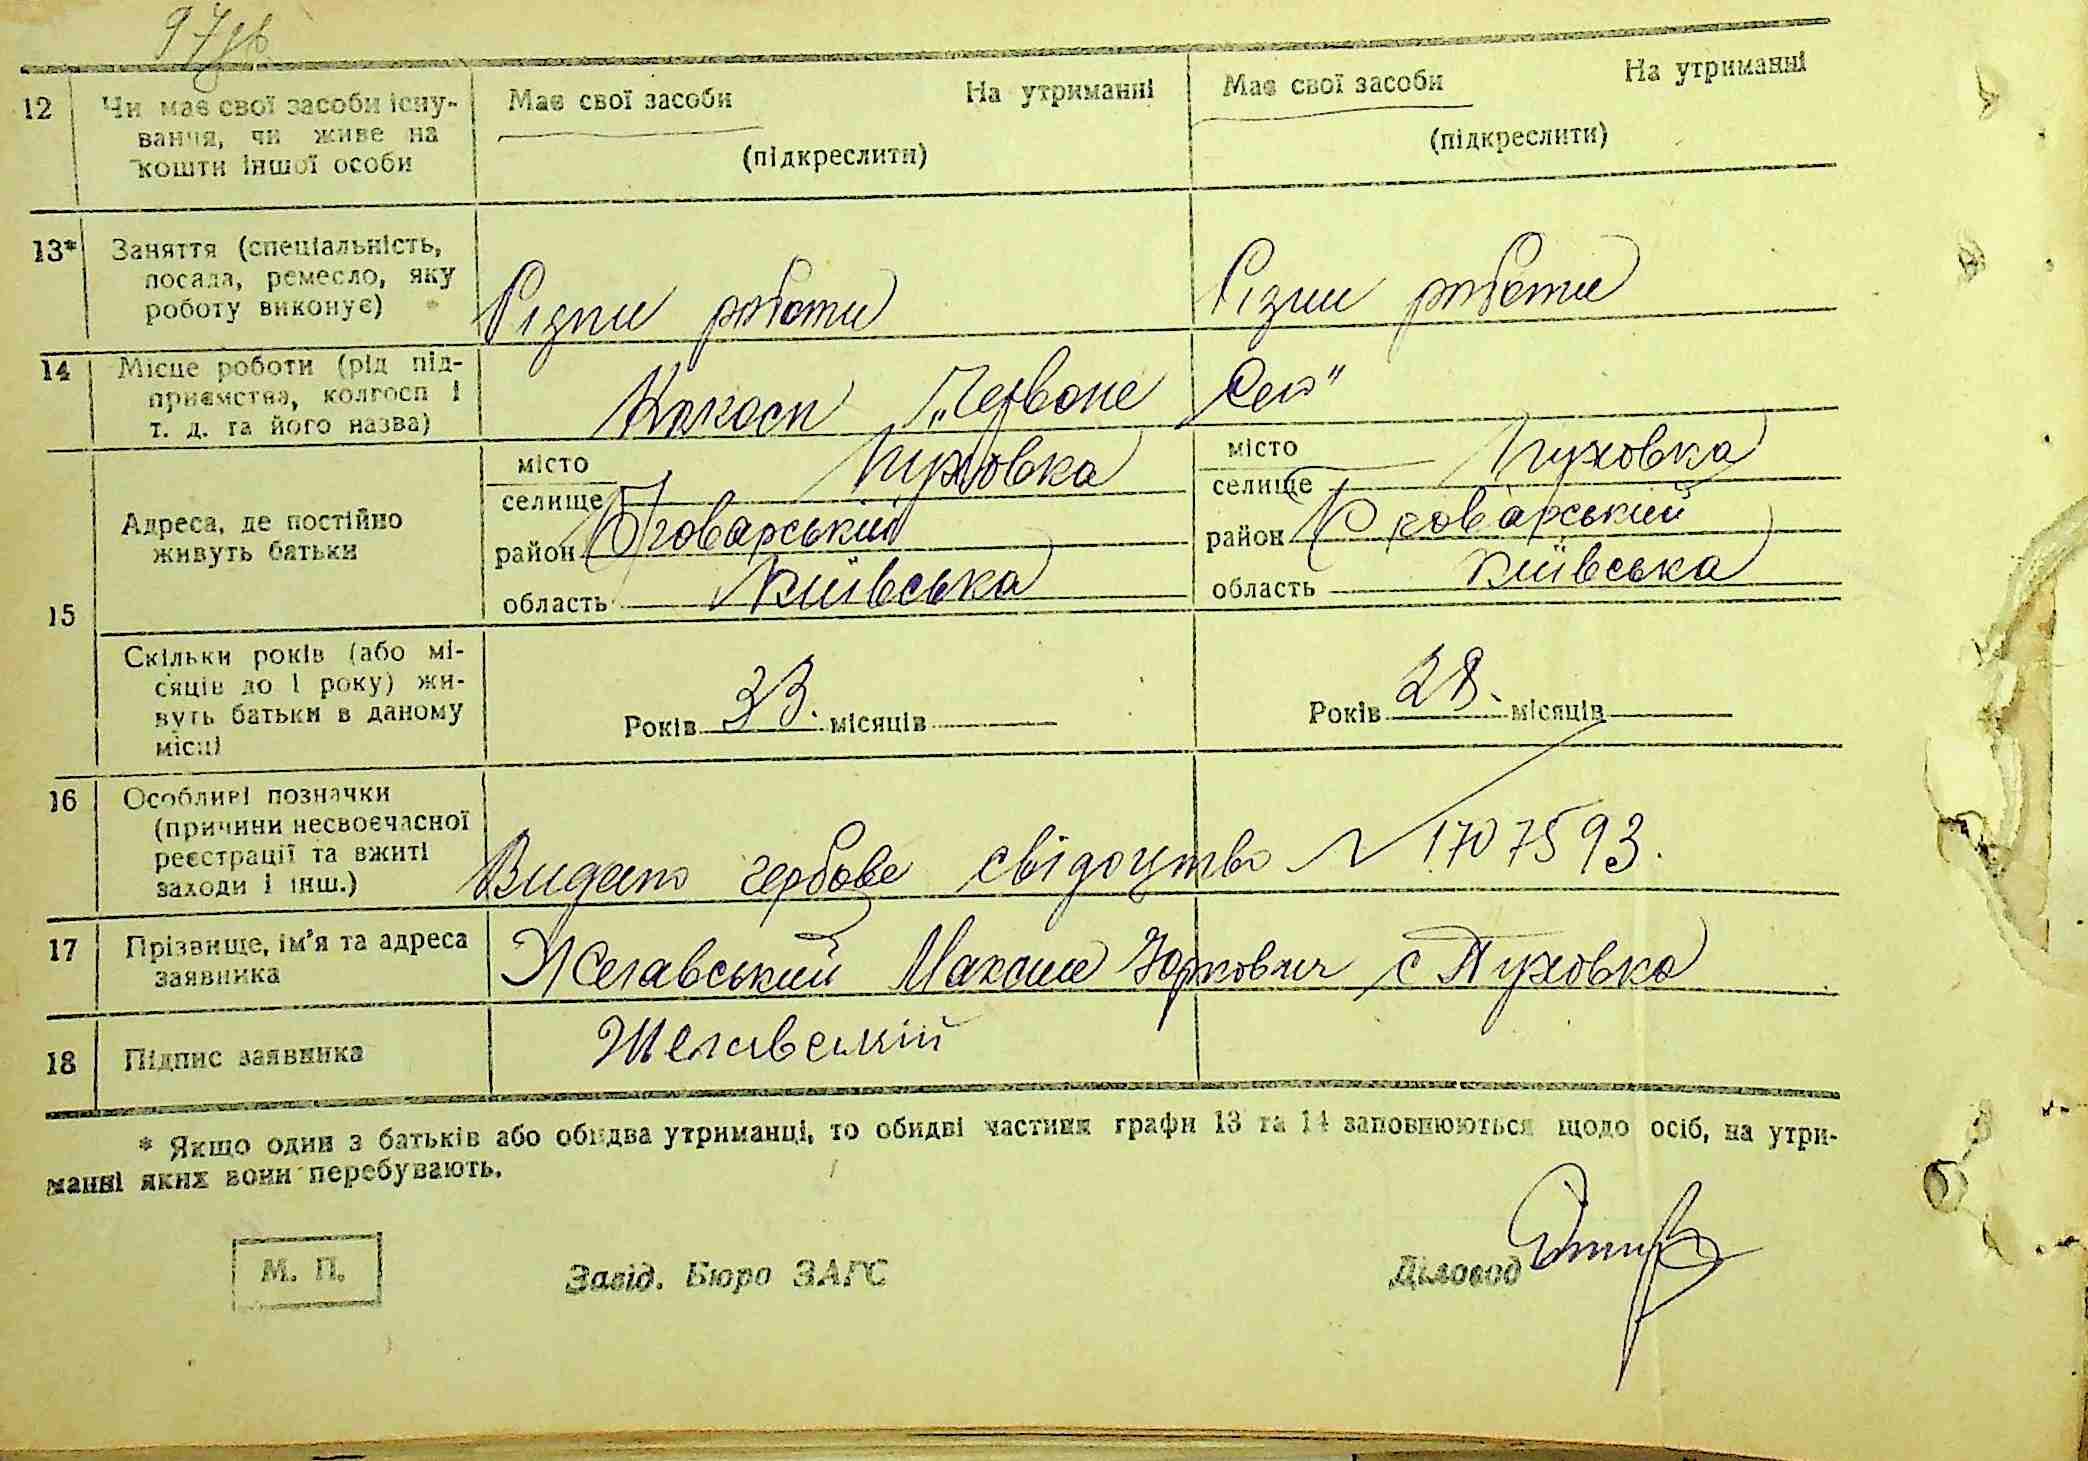 97
12 Чи має свої засоби існу-
вання, чи живе на
кошти іншої особи
Має свої засоби На утриманні
(підкреслити)
Має свої засоби На утриманні
(підкреслити)
13* Заняття (спеціальність,
посада, ремесло, яку
роботу виконує)
Різни роботи
Різни роботи
14 Місце роботи (рід під-
приємства, колгосп і
т. д. та його назва)
Колхосп „Червоне Село"
15 Адреса, де постійно
живуть батьки
місто
селище Пуховка
район Броварський
область Київська
місто
селище Пуховка
район Броварський
область Київська
Скільки років (або мі-
сяців до 1 року) жи-
вуть батьки в даному
місці
Років 33. місяців
Років 28. місяців
16 Особливі позначки
(причини несвоєчасної
реєстрації та вжиті
заходи і інш.)
Видано гербове свідоцтво № 1707593.
17 Прізвище, ім'я та адреса
заявника
Максим с Пуховка
18 Підпис заявника
* Якщо один з батьків або обидва утриманці, то обидві частини графи 13 та 14 заповнюються щодо осіб, на утри-
манні яких вони перебувають.
М. П. Завід. Бюро ЗАГС Діловод